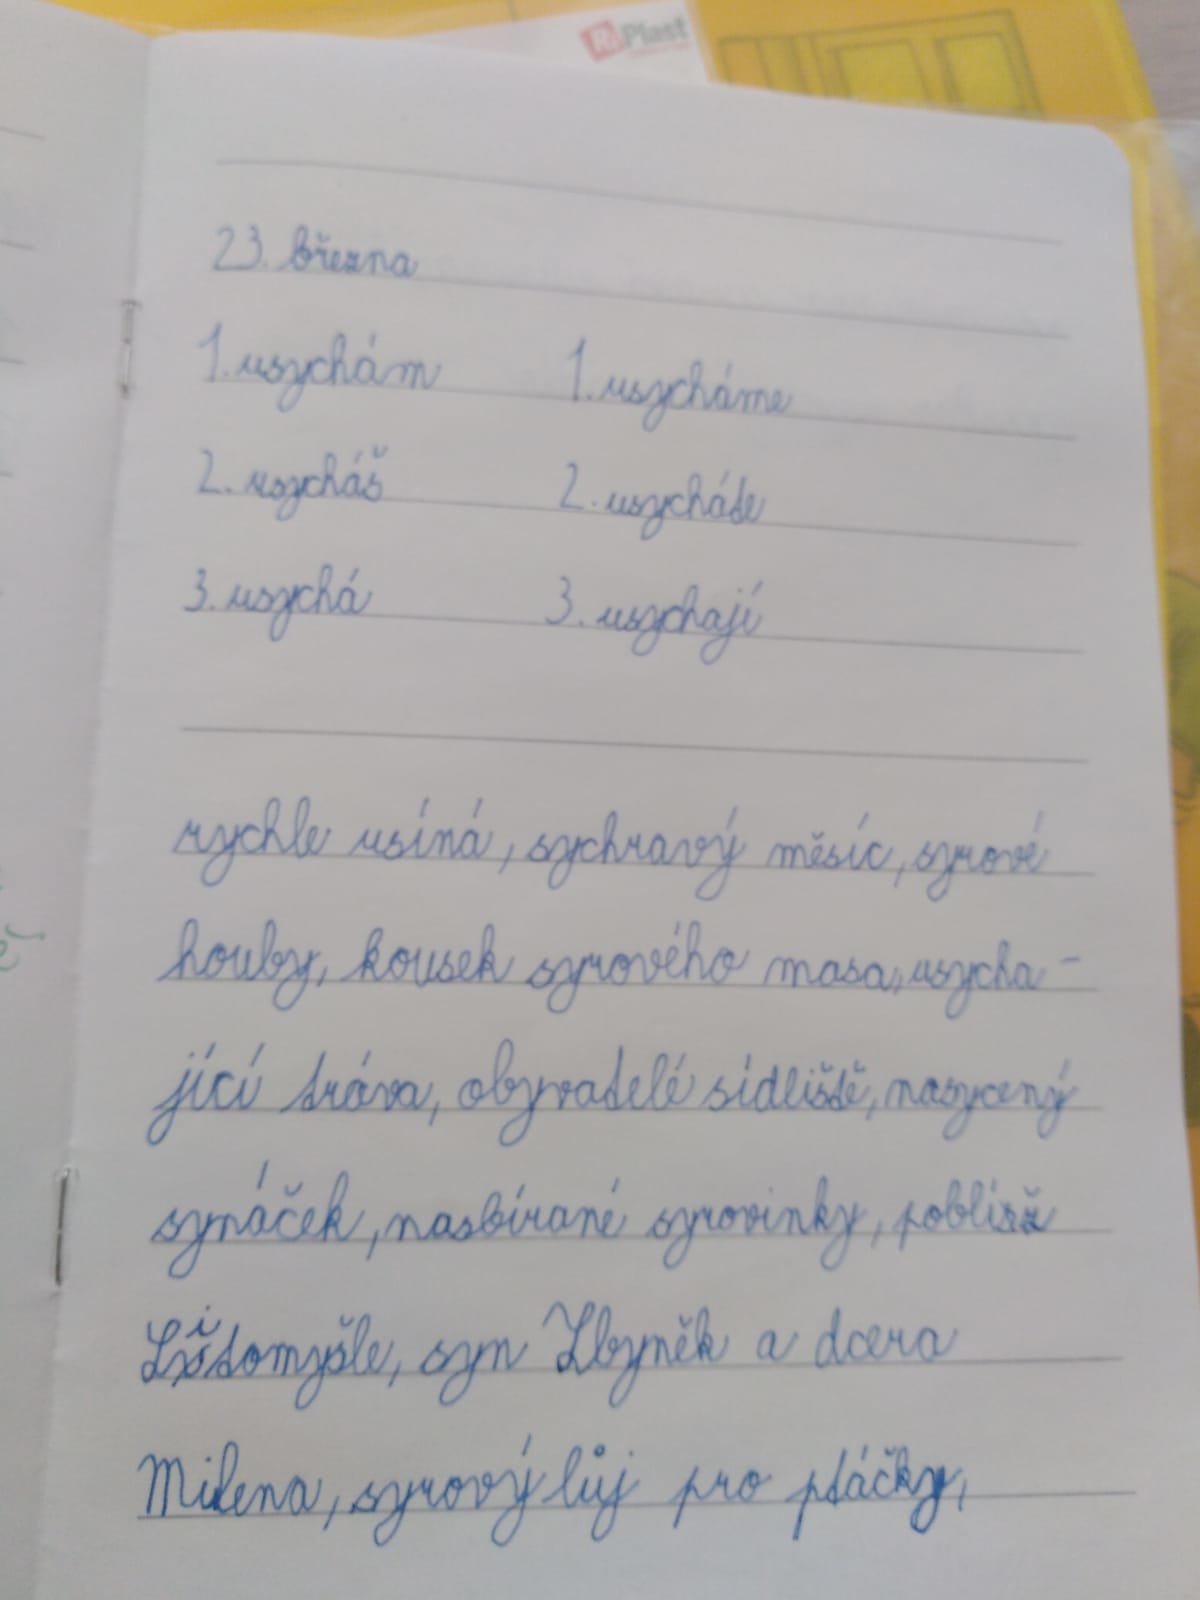 RiPlast
23. března
1. usychám 1. usycháme
2. usycháš 2. usycháte
3. usychá 3. usychají
rychle usíná, sychravý měsíc, syrové
houby, kousek syrového masa, usycha-
jící tráva, obyvatelé sídliště, nasycený
synáček, nasbírané syrovinky, poblíž
Litomyšle, syn Zbyněk a dcera
Milena, syrový lůj pro ptáčky,